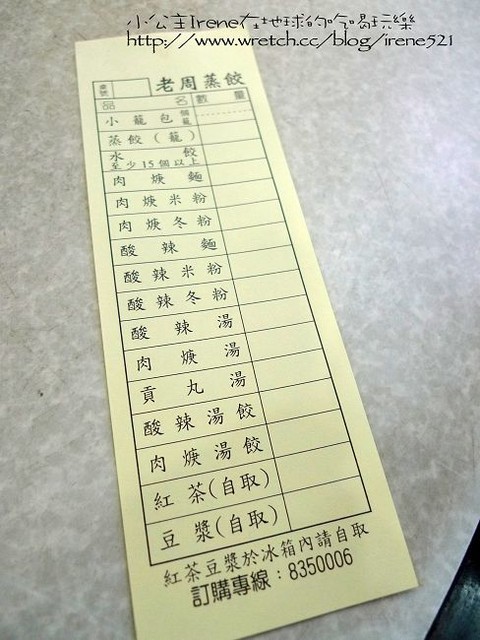 小公主Irene在地球的吃喝玩樂
http://www.wretch.cc/blog/irene521
桌號 老周蒸餃
品名 數量
小籠包 個 籠
蒸餃(籠)
水餃
至少15個以上
肉焿麵
肉焿米粉
肉焿冬粉
酸辣麵
酸辣米粉
酸辣冬粉
酸辣湯
肉焿湯
貢丸湯
酸辣湯餃
肉焿湯餃
紅茶(自取)
豆漿(自取)
紅茶豆漿於冰箱內請自取
訂購專線：8350006